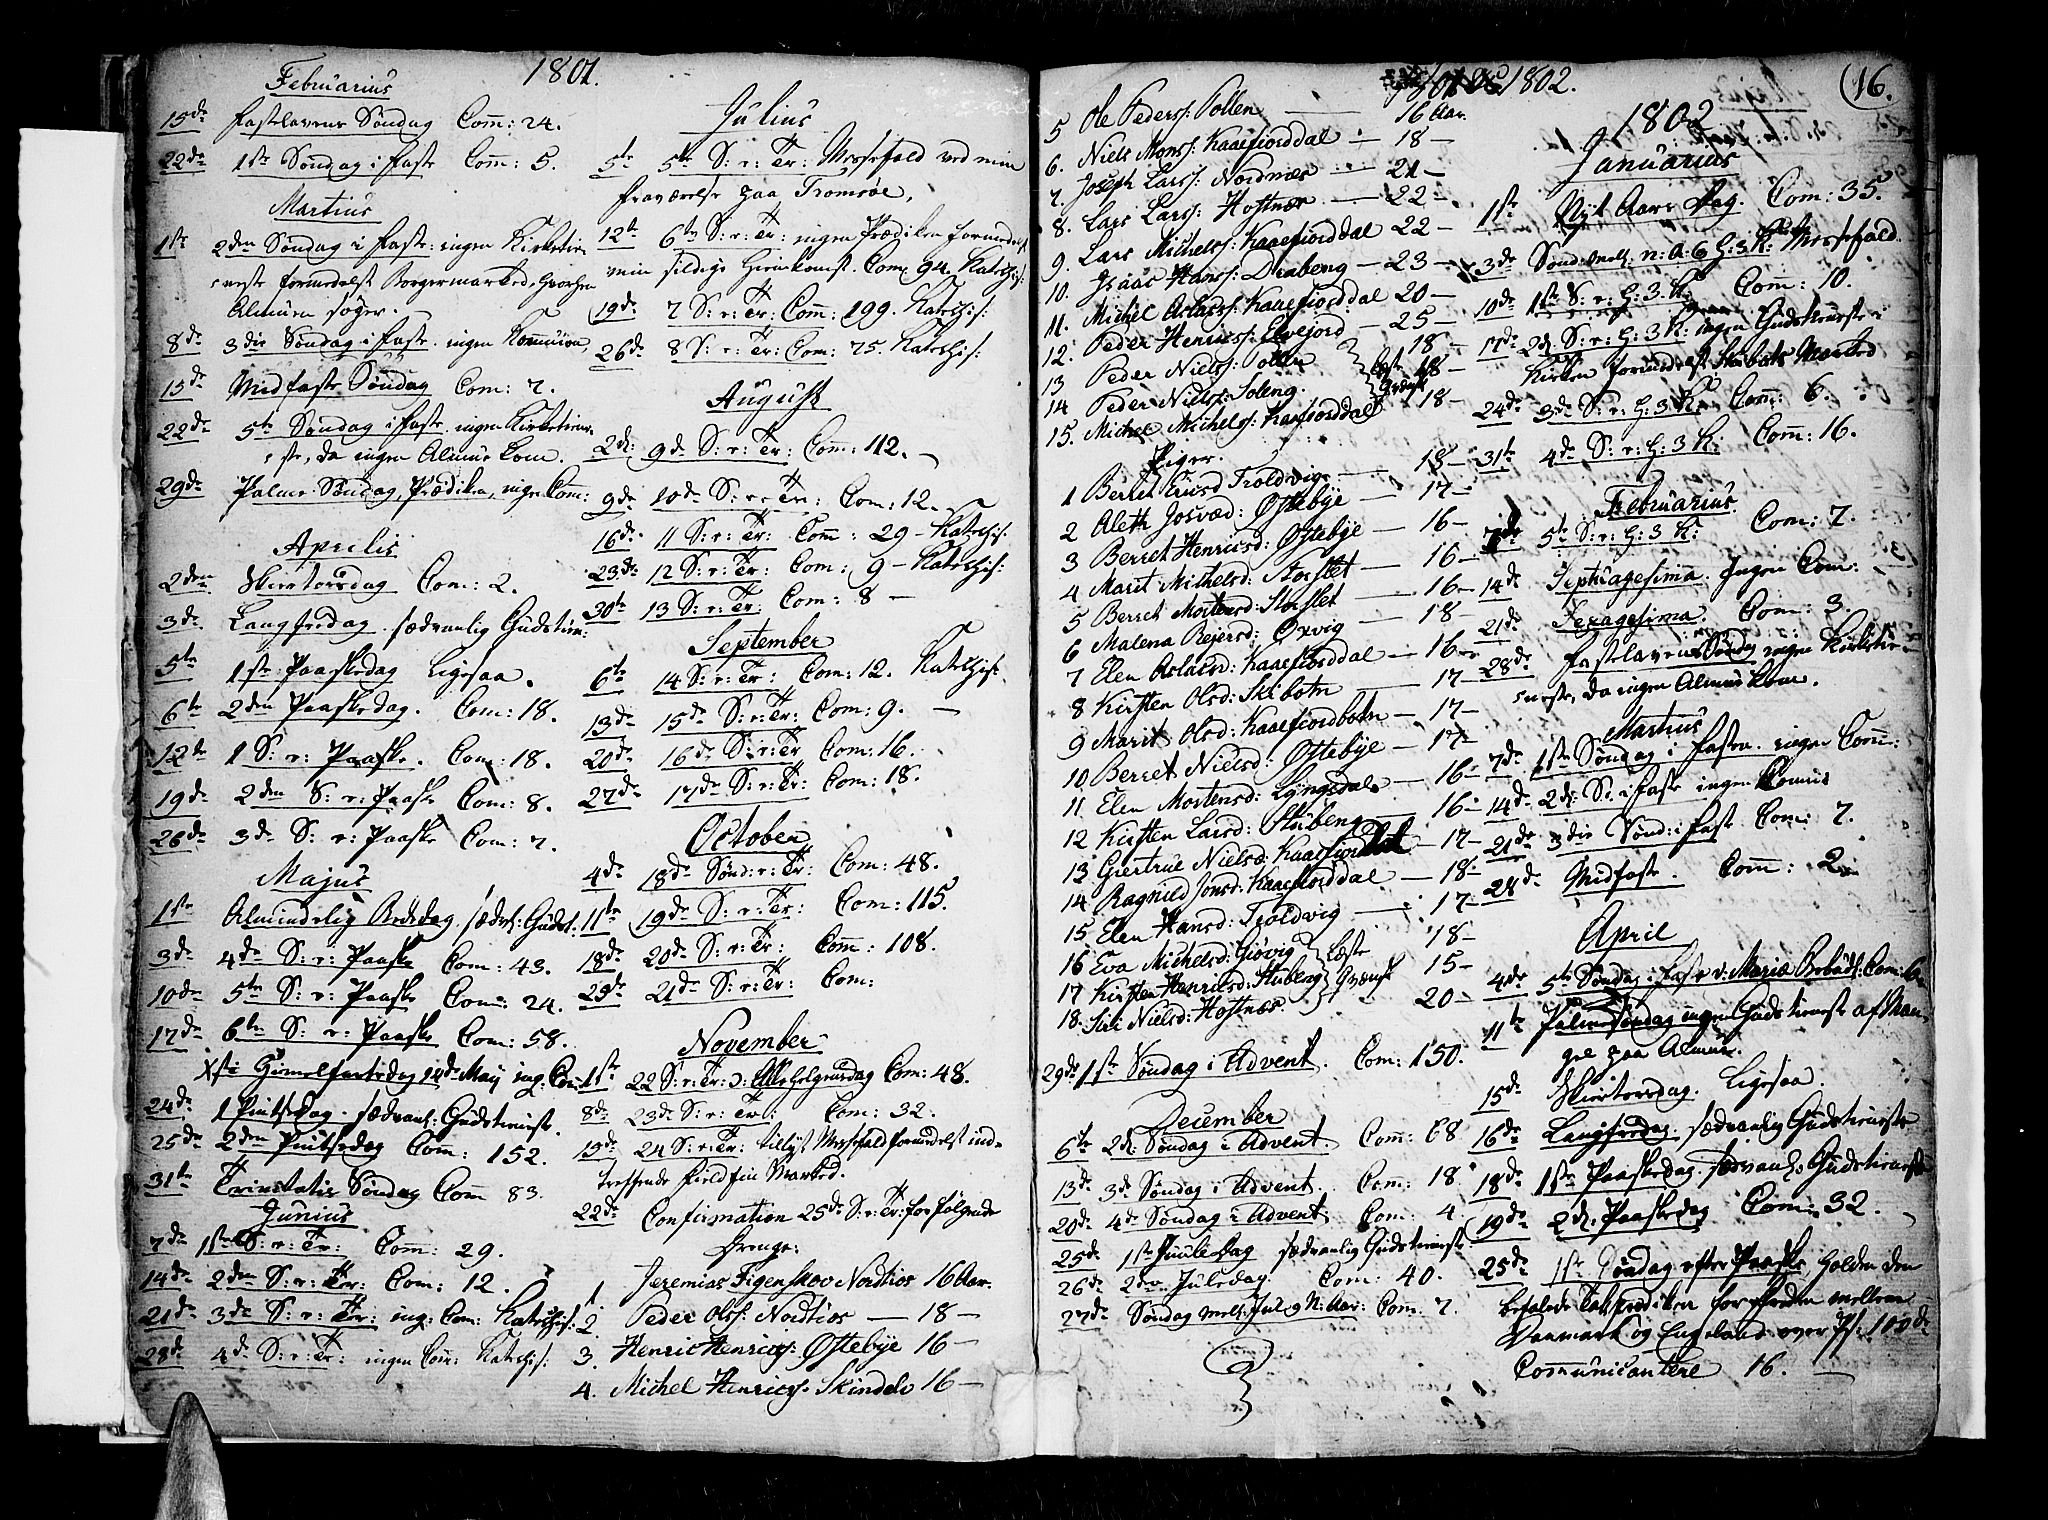 1801.
Februarius
15de Fastelavens Søndag Com: 24.
22de 1ste Søndag i Faste Com: 5.
Martius
1ste 2den Søndag i Faste: ingen Kirketien-
neste formedelst Borgermarked, hvorhen
Almuen søger.
8de 3die Søndag i Faste. ingen Kommunion,
15de Midfaste Søndag Com: 7.
22de 5te Søndag i Faste ingen Kirketiene-
ste, da ingen Almue kom.
29de Palme Søndag, Prædiken, ingen Com:
Aprilis
2den Skiertorsdag Com: 2.
3de Langfredag. sædvanlig Gudstien:
5te 1ste Paaskedag Ligesaa.
6te 2den Paaskedag. Com: 18.
12te 1 S: e: Paaske. Com: 18.
19de 2den S: e: Paaske Com: 8.
26de 3de S: e: Paaske Com: 7.
Majus
1ste Almindelig Bededag, sædv: Gudst.
3de 4de S: e: Paaske Com: 43.
10de 5te S: e: Paaske Com: 24.
17de 6te S: e: Paaske Com: 58.
Himelfartsdag 14de Maij ing: Com:
24de 1 Pintsedag. sædvanl: Gudstienst.
25de 2den Pintsedag Com: 152.
31te Trinitatis Søndag Com 83.
Junius
7de 1ste S: e: Tr: Com: 29.
14de 2den S: e: Tr: Com: 12.
21de 3de S: e: Tr: ing: Com: Katechis:
28de 4de S: e: Tr: ingen Com: Katechis:
Julius
5te 5te S: e: Tr: Messefald ved min
fraværelse paa Tromsøe,
12te 6te S: e: Tr: ingen Prædiken formedelst
min sildige Hiemkomst. Com: 94. Katechis:
19de 7 S: e: Tr: Com: 199. Katechis:
26de 8 S: e: Tr: Com: 75. Katechis:
August
2den 9de S: e: Tr: Com: 112.
9de 10de S: e: Tr: Com: 12.
16de 11 S: e: Tr: Com: 29 - Katechis:
23de 12 S: e: Tr: Com: 9 - Katechis:
30te 13 S: e: Tr: Com: 8 -
September
6te 14 S: e: Tr: Com: 12. Katechis:
13de 15de S: e: Tr: Com: 9. -
20de 16de S: e: Tr Com: 16.
27de 17de S: e: Tr: Com: 18.
October
4de 18de Sønd: e: Tr: Com: 48.
11te 19de S: e: Tr: Com: 115.
18de 20de S: e: Tr: Com: 108.
25de 21de S: e: Tr: Com:
November
1ste 22 S: e: Tr: ɔ: Allehelgensdag Com: 48.
8de 23de S: e: Tr: Com: 32.
15de 24 S: e: Tr: tillyst Messefald formedelst ind-
treffende Fieldfin Marked.
22de Confirmation 25de S: e: Tr: for følgende
Drenge:
1. Jeremias Figenskov Nordtios 16 Aar.
2. Peder Olss: Nordtios — 18 —
3. Henric Henrics: Østebye 16 —
4. Michel Henricss: Skindelv 16 —
1802.
5 Ole Pederss: Pollen — 16 Aar.
6. Niels Monss: Kaaefiorddal — 18 —
7. Joseph Larss: Nordnæs — 21 —
8. Lars Larss: Hostnæs — 22 —
9. Lars Michelss: Kaaefiorddal 22 —
10. Isaac Hanss: Drabeng — 23 —
11. Michel Aslacss: Kaaefiorddal 20 —
12. Peder Henricss: Elvejord — 25 —
13 Peder Nielss: Pollen 18 —
14 Peder Nielss: Soleng. 18 —
15. Michel Michelss: Kaafiorddal 18 —
Læste Qvænsk
Piger.
1 Berret Ericsd Troldvig — 18 —
2 Aleth Josvæd: Østebye — 17 —
3 Berret Henricsd: Østebye — 16 —
4 Marit Michelsd: Storslet — 16 —
5 Berret Mortensd: Storslet — 16 —
6 Malena Rejersd: Oxvig — 18 —
7 Elen Aslacsd: Kaaefiorddal — 16 —
8 Kirsten Olsd: Skibotn — 17 —
9 Marit Olsd: Kaaefiordbotn — 17 —
10 Berret Nielsd: Østebye — 17 —
11 Elen Mortensd: Lyngsdale — 16 —
12 Kirsten Larsd: Stubeng 16 —
13 Giertrue Nielsd: Kaaefiorddal — 17 —
14 Ragnild Jonsd: Kaaefiorddal — 18 —
15 Elen Hansd: Troldvig — 17 —
16 Eva Michelsd: Giøvig 18 —
17 Kirsten Henricsd: Stubeng 15 —
18. Siri Nielsd: Hostnæs. 20 —
Læste Qvænsk
29de 1ste Søndag i Advent. Com: 150.
December
6te 2d. Søndag i Advent. Com: 68
13de 3de Søndag i Advent. Com: 18.
20de 4de Søndag i Advent. Com: 4.
25de 1ste Juule Dag sædvanlig Gudstienst.
26de 2den Juledag. Com: 40.
27de Søndag mell: Jul og N: Aar: Com: 7.
(16.
1802
Januarius
1ste Nyt Aars Dag. Com: 35.
3de Sønd: mell: N: A: & H: 3 K: Messefald.
10de 1ste S: e: H: 3 K: Com: 10.
17de 2d. S: e: H: 3 K: ingen Gudstieneste i
Kirken formedelst Skibots Marked
24de 3de S: e: H: 3 K: Com: 6.
31te 4de S: e: H: 3 K: Com: 16.
Februarius
7de 5te S: e: H: 3 K: Com: 7.
14de Septuagesima. Ingen Com:
21de Sexagesima. Com: 3.
28de Fastelavens Søndag ingen Kirketie-
neste, da ingen Almue kom.
Martius
7de 1ste Søndag i Fasten. ingen Com:
14de 2d. Sø. i Faste ingen Comun
21de 3die Sønd: i Fast Com: 7.
28de Midfaste. Com: 2
April
4de 5te Søndag i Faste ɔ: Mariæ Bebud: Com: 6.
11te Palmesøndag ingen Gudstieneste af Man-
gel paa Almue.
15de Skiertorsdag. Ligesaa.
16de Langfredag. sædvanlig Gudstieneste
18de 1ste Paaskedag. sædvanl: Gudstieneste
19de 2d. Paaskedag Com: 32.
25de 1ste Søndag efter Paaske Holden den
befalede Takprædiken for Freden mellem
Danmark og Engeland over Ps: 100de
Communicantere 16. —